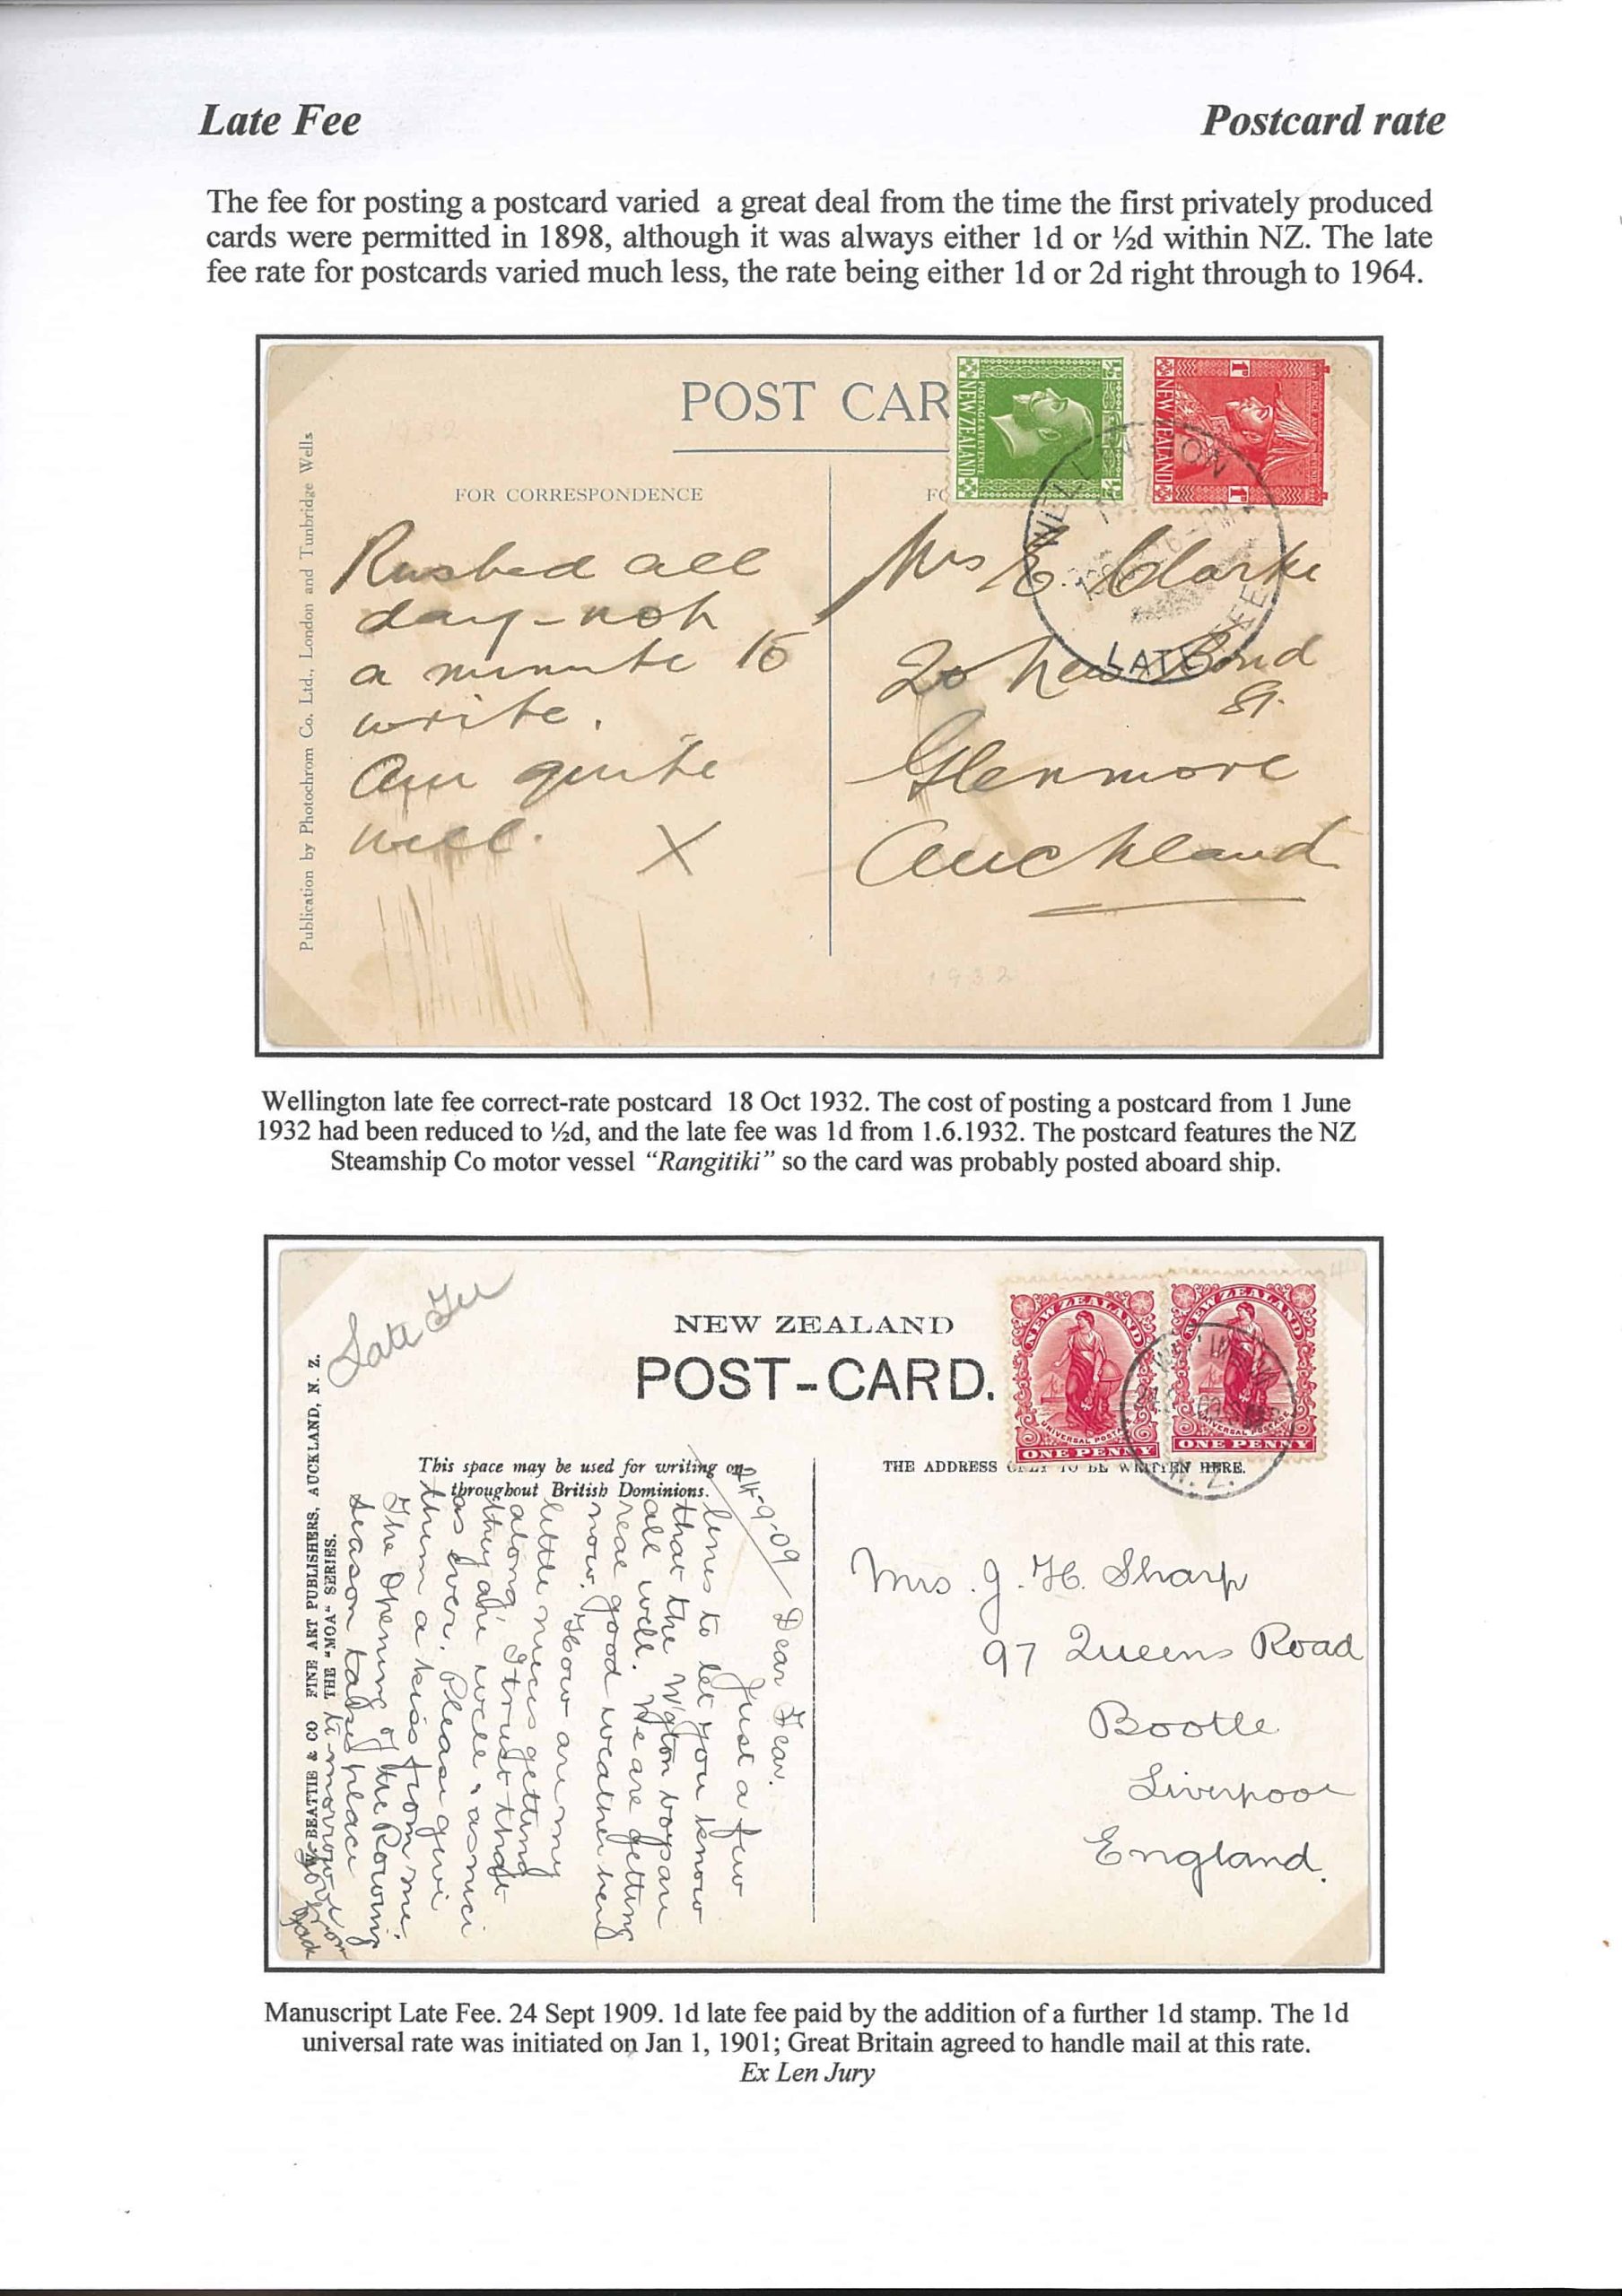 Late Fee
Postcard rate
The fee for posting a postcard varied a great deal from the time the first privately produced
cards were permitted in 1898, although it was always either 1d or ½d within NZ. The late
fee rate for postcards varied much less, the rate being either 1d or 2d right through to 1964.
POST CAR
FOR CORRESPONDENCE
FO
Publication by Photochrom Co. Ltd., London and Tunbridge Wells
NEW ZEALAND
POSTAGE & REVENUE
NEW ZEALAND
WELLINGTON
LATE FEE
Rushed all
day - not
a minute to
write.
Am quite
well. X
Mrs E. Clarke
20 New Bond
St.
Glenmore
Auckland
1932
Wellington late fee correct-rate postcard 18 Oct 1932. The cost of posting a postcard from 1 June
1932 had been reduced to ½d, and the late fee was 1d from 1.6.1932. The postcard features the NZ
Steamship Co motor vessel "Rangitiki" so the card was probably posted aboard ship.
Late Fee
NEW ZEALAND
POST-CARD.
NEW ZEALAND
UNIVERSAL POSTAGE
ONE PENNY
NEW ZEALAND
UNIVERSAL POSTAGE
ONE PENNY
N.Z.
This space may be used for writing on
throughout British Dominions.
THE ADDRESS ONLY TO BE WRITTEN HERE.
BEATTIE & CO FINE ART PUBLISHERS, AUCKLAND, N. Z.
THE "MOA" SERIES.
24-9-09
Dear Fear.
Just a few
lines to let you know
that the Wgton boys are
all well. We are getting
real good weather here
now. How are my
little nieces getting
along, I trust that
they are well
as ever. Please give
them a kiss from me.
The Opening of the Rowing
Season takes place
to-morrow
from
Jack
Mrs. J. H. Sharp
97 Queens Road
Bootle
Liverpool
England.
Manuscript Late Fee. 24 Sept 1909. 1d late fee paid by the addition of a further 1d stamp. The 1d
universal rate was initiated on Jan 1, 1901; Great Britain agreed to handle mail at this rate.
Ex Len Jury